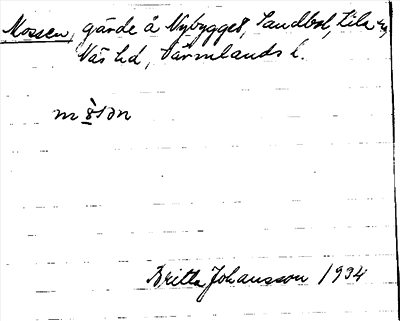 Mossen, gärde å Nybygget, Sandbol, Lila Eg,
Näs hd, Värmlands l.
Britta Johansson 1934